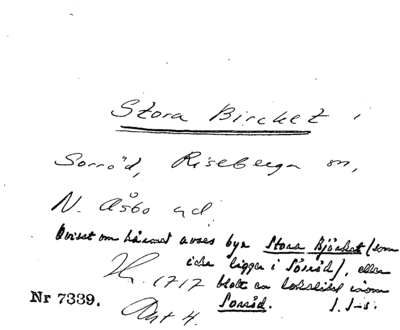 Stora Bircket i
Sorröd, Riseberga sn,
N. Åsbo hd.
Ovisst om härmed avses byn Stora Björket (som
icke ligger i Sörröd), eller
H. 1717 blott en lokalitet inom
Nr 7339. Avt 4. Sorröd.